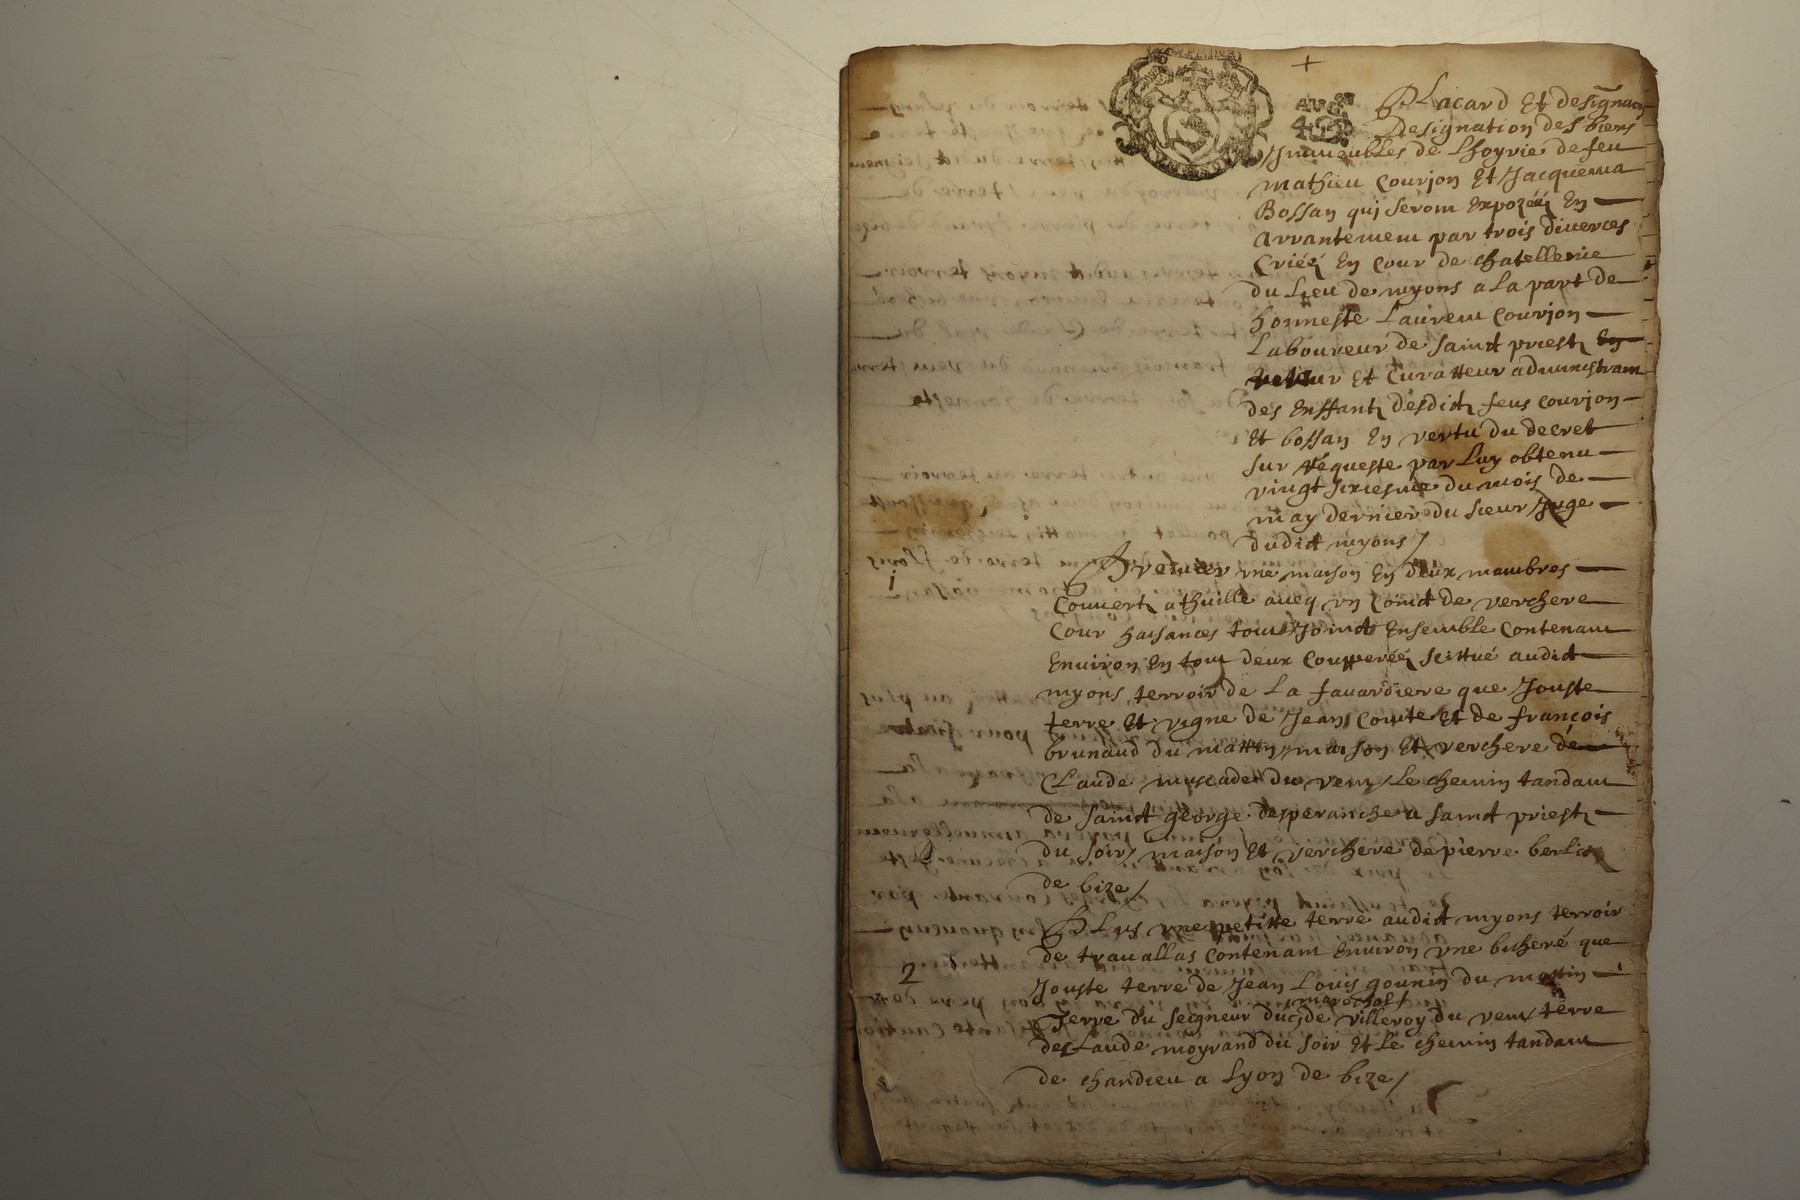 Placard Et designaon
Designation des biens
Immeubles de Lhoyrie de feu
mathieu Courjon Et Jacquema
Bossan qui seront Expozéés En
Arrantement par trois diverces
Criéés En Cour de chatellenie
du Lieu de myons a la part de
honneste Laurent Courjon
Laboureur de Saint priest
tuteur Et Curatteur administrant
des Enffants desdicts feus Courjon
Et bossan En vertu du decret
sur Requeste par Luy obtenu
vingt sixiesme du mois de
may dernier du sieur Juge
dudict myons /
1
Premier vne maison En deux mambres
Couvert a thuille aueq vn Coinct de verchere
Cour haisances tout Joinct Ensemble Contenant
Environ En tout deux Couppereés scittué audict
myons terroir de La fauardiere que Jouste
terre Et vigne de Jean Comte Et de françois
brunaud du mattin, maison Et verchere de
Claude muscadet du vent / Le chemin tandant
de sainct george desperanche a Saint priest
du soir / maison Et verchere de pierre
de bize /
2
Plus vne petitte terre audict myons terroir
de trauallas Contenant Environ vne bicheré que
Jouste terre de Jean Louis gounin du mattin
marechal /
Terre du seigneur duc de villeroy du vent / terre
de Claude moyrand du soir Et Le chemin tandant
de chandieu a Lyon de bize /